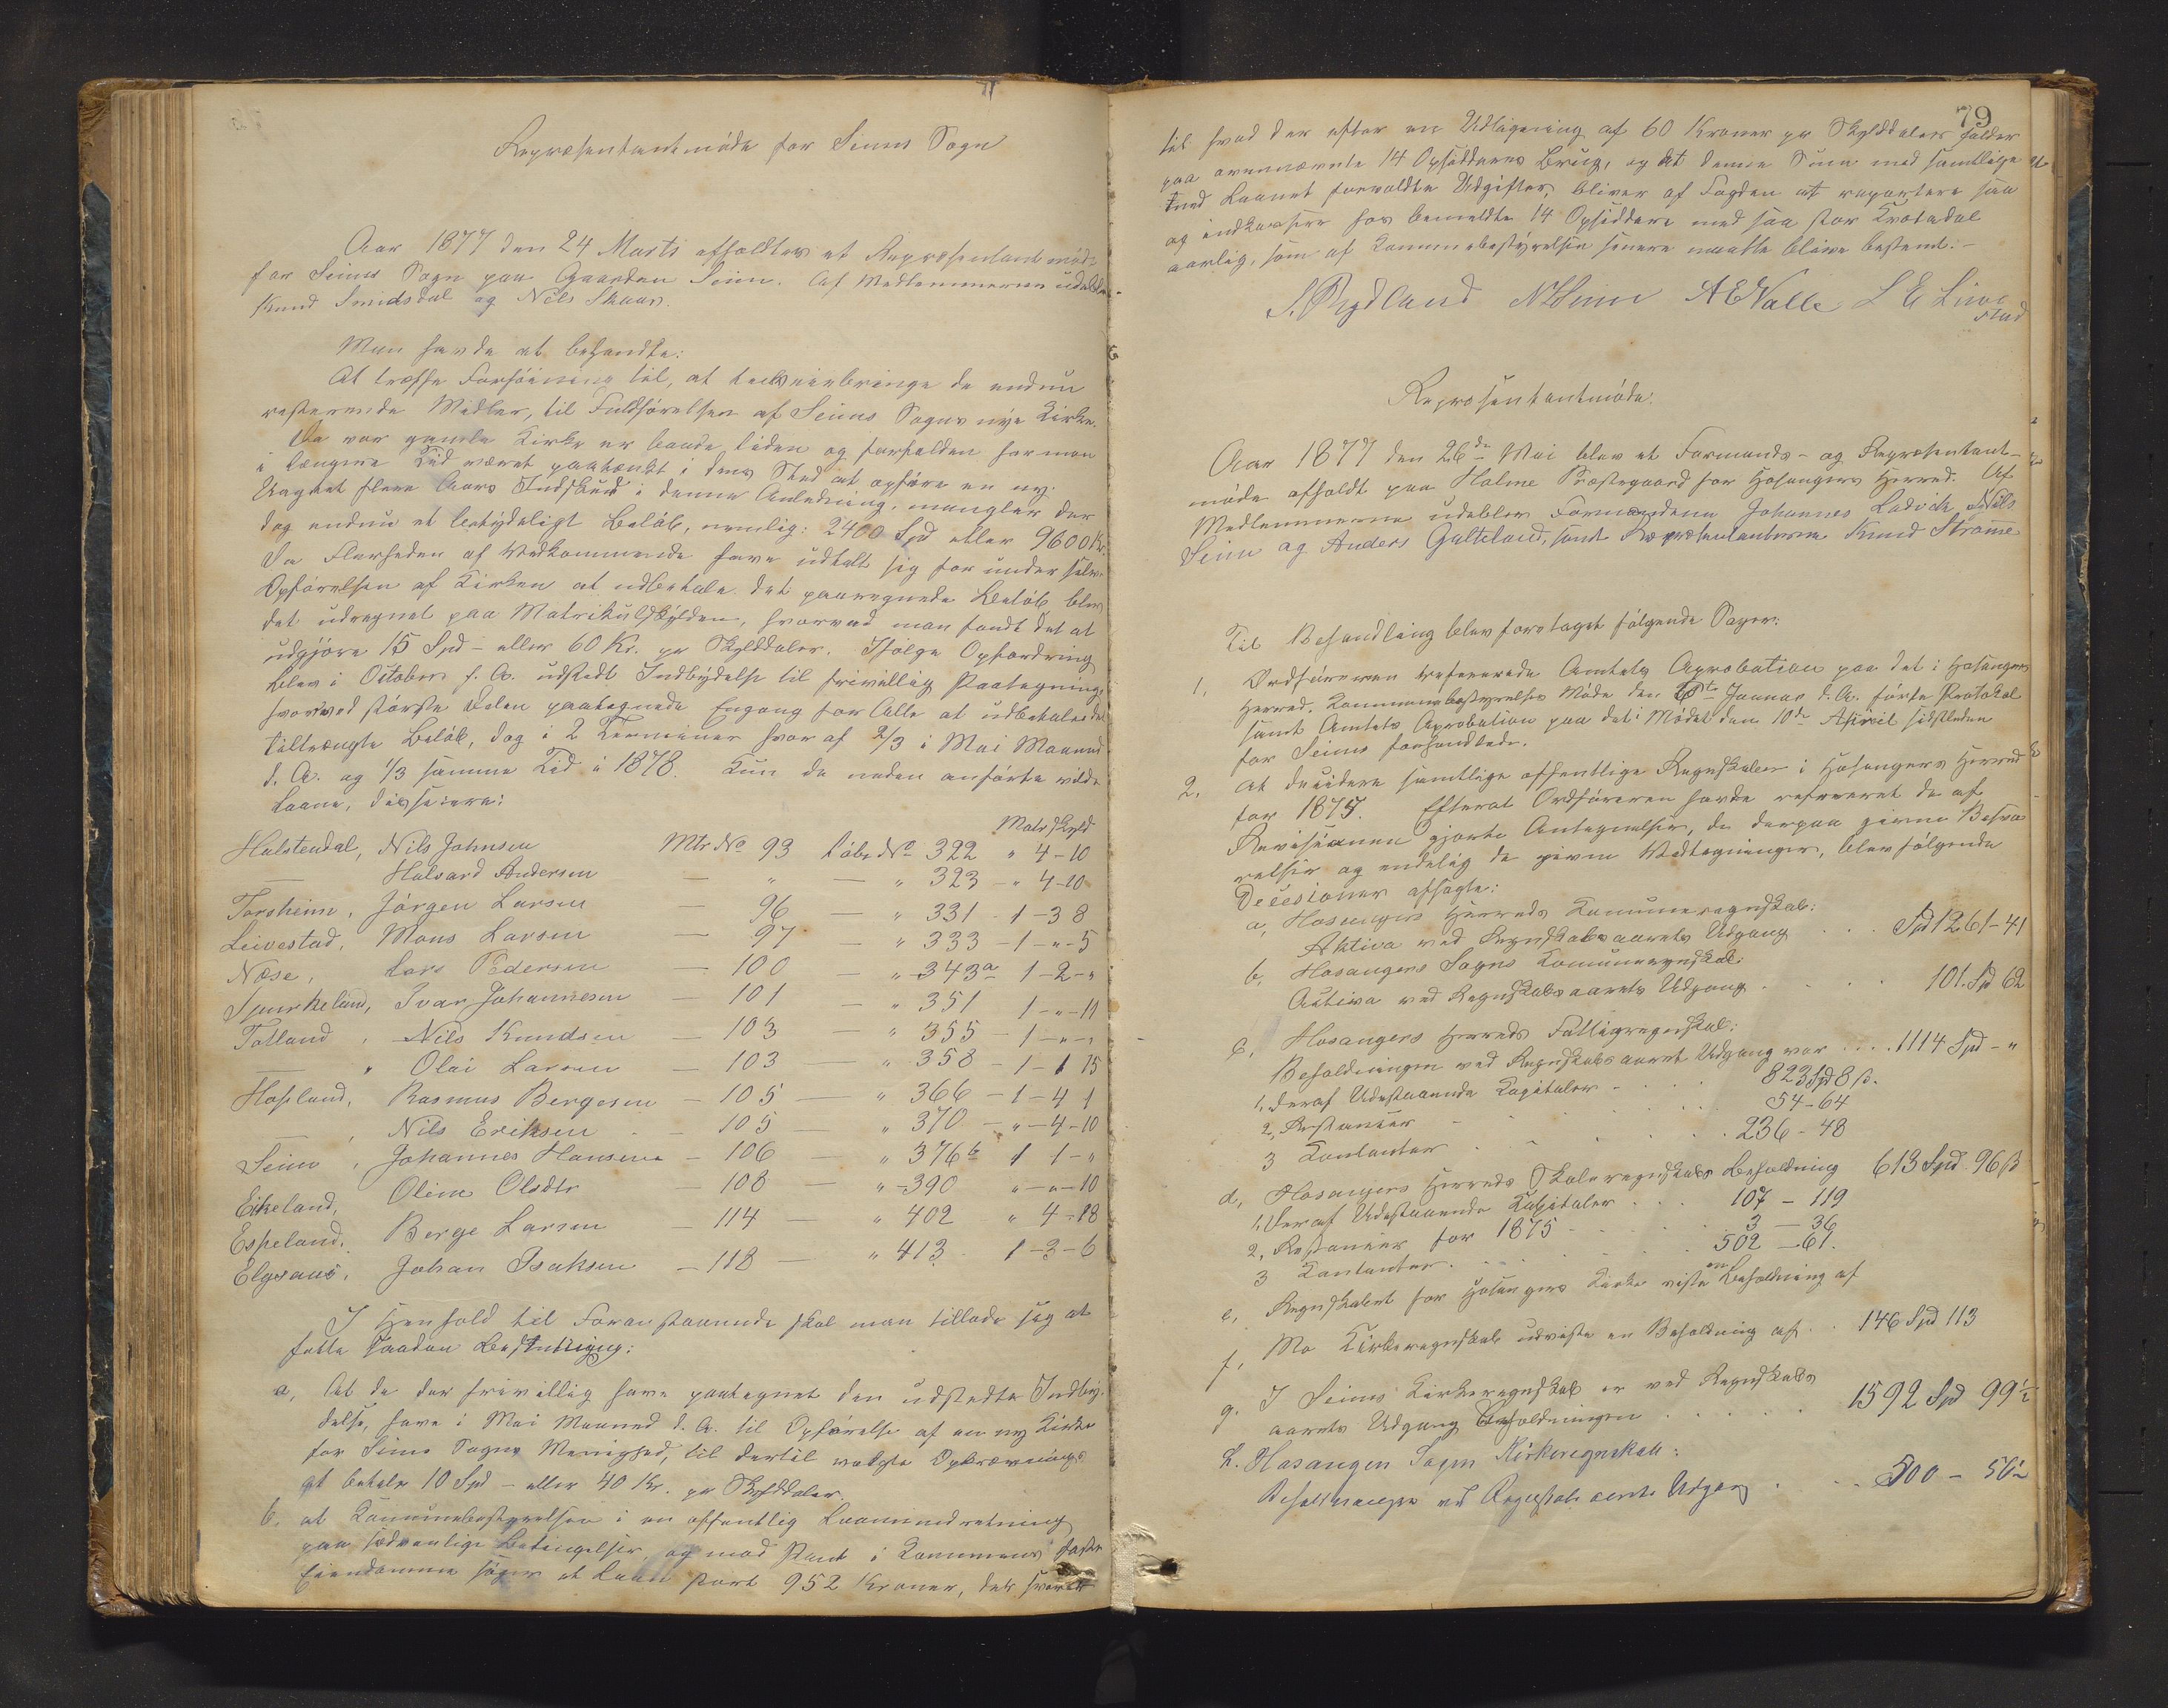 Repræsentantmøde for Seims Sogn
Aar 1877 den 24 Marts afholdtes et Repræsentantmøde
for Seims Sogn paa Gaarden Seim. Af Medlemmerne udeblev
Knud Smidsdal og Nils Skaar.
Man havde at behandle:
At træffe Forføining til, at tilveiebringe de endnu
resterende Midler, til Fuldførelsen af Seims Sogns nye Kirke.
Da vor gamle Kirke er baade liden og forfalden har man
i længere Tid været paatænkt i dens Sted at opføre en ny.
Uagtet flere Aars Indskud i denne Anledning, mangler der
dog endnu et betydeligt Beløb, nemlig: 2400 Spd eller 9600 Kr.
Da Flerheden af Vedkommende have udtalt sig for under selve
Opførelsen af Kirken at udbetale det paaregnede Beløb, blev
det udregnet paa Matrikulskylden, hvorved man fandt det at
udgjøre 15 Spd - eller 60 Kr. pr Skylddaler. Ifølge Opfordring
blev i October f. A. udstedt Indbydelse til frivillig Paategning,
hvorved største Delen paategnede Engang for Alle at udbetale det
tiltrængte Beløb, dog i 2 Terminer hvoraf 2/3 i Mai Maaned
d. A. og 1/3 samme Tid i 1878. Kun de neden anførte vilde
laane, disse ere:
Matrskyld
Halstendal, Nils Johnsen Mtr No 93 Løbe No 322 " 4-10
— Halvard Andersen — " — " 323 - " 4-10
Torsheim, Jörgen Larsen — 96 — " 331 - 1-3 8
Leivestad, Mons Larsen — 97 — " 333 - 1-"-5
Næse, Lars Pedersen — 100 " 343a 1-2-"
Spurkeland, Ivar Johannesen — 101 — " 351 1-"-19
Totland, Nils Knudsen — 103 — " 355 - 1-"-"
— " Olai Larsen — 103 — " 358 - 1-1 15
Hopland, Rasmus Bergesen — 105 — " 366 - 1-4 1
—, Nils Eriksen — 105 — " 370 - "-4-10
Seim, Johannes Hansen — 106 — " 376b 1 1-"
Eikeland, Oline Olsdtr — 108 — " 390 "-"-10
Espeland, Berge Larsen — 114 — " 402 " 4-18
Elgsaas, Johan Isaksen — 118 — " 413 1-3-6
I Henhold til Foranstaaende skal man tillade sig at
fatte saadan Beslutning:
a, At de der frivillig have paategnet den udstedte Indby-
delse, have i Mai Maaned d. A. til Opførelse af en ny Kirke
for Seims Sogns Menighed, til dertil valgte Opkrævnings
at betale 10 Spd - eller 40 Kr. pr Skylddaler.
b, at Kommunebestyrelsen i en offentlig Laaneindretning
paa sædvanlige Betingelser og mod Pant i Kommunens faste
Eiendomme søger et Laan stort 952 Kroner, det svarer
79
til hvad der efter en Udligning af 60 Kroner pr Skylddaler falder
paa ovennævnte 14 Opsidderes Brug, og at denne Sum med samtlige
med Laanet forvoldte Udgifter, bliver af Fogden at repartere saa
og indkassere hos bemeldte 14 Opsiddere med saa stor Kvotadel
aarlig, som af Kommunebestyrelsen senere maatte blive bestemt. -
S. Rydland N Seim A E Valle L E Live
stad
Repræsentantmøde.
Aar 1877 den 26de Mai blev et Formands- og Repræsentant-
møde afholdt paa Holme Præstegaard for Hosangers Herred. Af
Medlemmerne udeblev Formændene Johannes Ladvik Nils
Seim og Anders Gulteland, samt Repræsentanterne Knud Strømme
Til Behandling blev foretaget følgende Sager:
1, Ordføreren refererede Amtets Aprobation paa det i Hosangers
Herred. Kommunebestyrelses Møde den Januar d. A. førte Protokol
samt Amtets Aprobation paa det i Mødet den 10de April sidstleden
for Seims forhandlede.
2, At decidere samtlige offentlige Regnskaber i Hosangers Herred
for 1875. Efterat Ordføreren havde refereret de af
Revisionen gjorte Antegnelser, de derpaa givne Besva-
relser og endelig de givne Vedtegninger, blev følgende
Decesioner afsagte:
a, Hosangers Herreds Kommuneregnskab:
Aktiva ved Regnskabsaarets Udgang . . . Spd 1261-41
b, Hosangers Sogns Kommuneregnskab:
Activa ved Regnskabsaarets Udgang . . . . 101. Spd 62
c, Hosangers Herreds Fattigregnskab:
Beholdningen ved Regnskabsaaret Udgang var . . . . 1114 Spd - "
1, deraf Udestaaende Kapitaler - 823 Spd 8 ß.
2, Restancer - 54-64
3 Kontanter 236-48
d, Hosangers Herreds Skoleregnskabs Beholdning 613 Spd 96 ß
1, deraf Udestaaende Kapitaler . . . 107 - 119
2, Restancer for 1875 3 - 36
3 Kontanter. 502 - 61.
e, Regnskabet for Hosangers Kirke viste en Beholdning af
f, Mo Kirkeregnskab udviste en Beholdning af . . 146 Spd 113
g. I Seims Kirkeregnskab er ved Regnskabs
aarets Udgang Beholdningen . . . . . 1592 Spd 99½
h. Hosanger Sogns Kirkeregnskab:
Beholdningen ved Regnskabsaarets Udgang . . . 500 - 56½